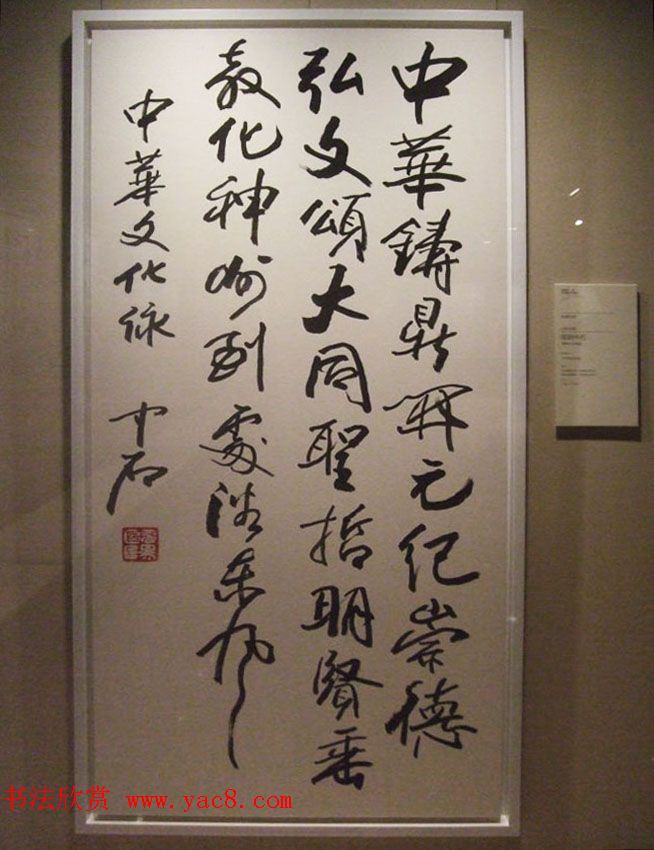 中華鑄鼎開元紀崇德
弘文頌大同聖哲明賢垂
教化神州到處沐東風
中華文化詠 中石
书法欣赏 www.yac8.com